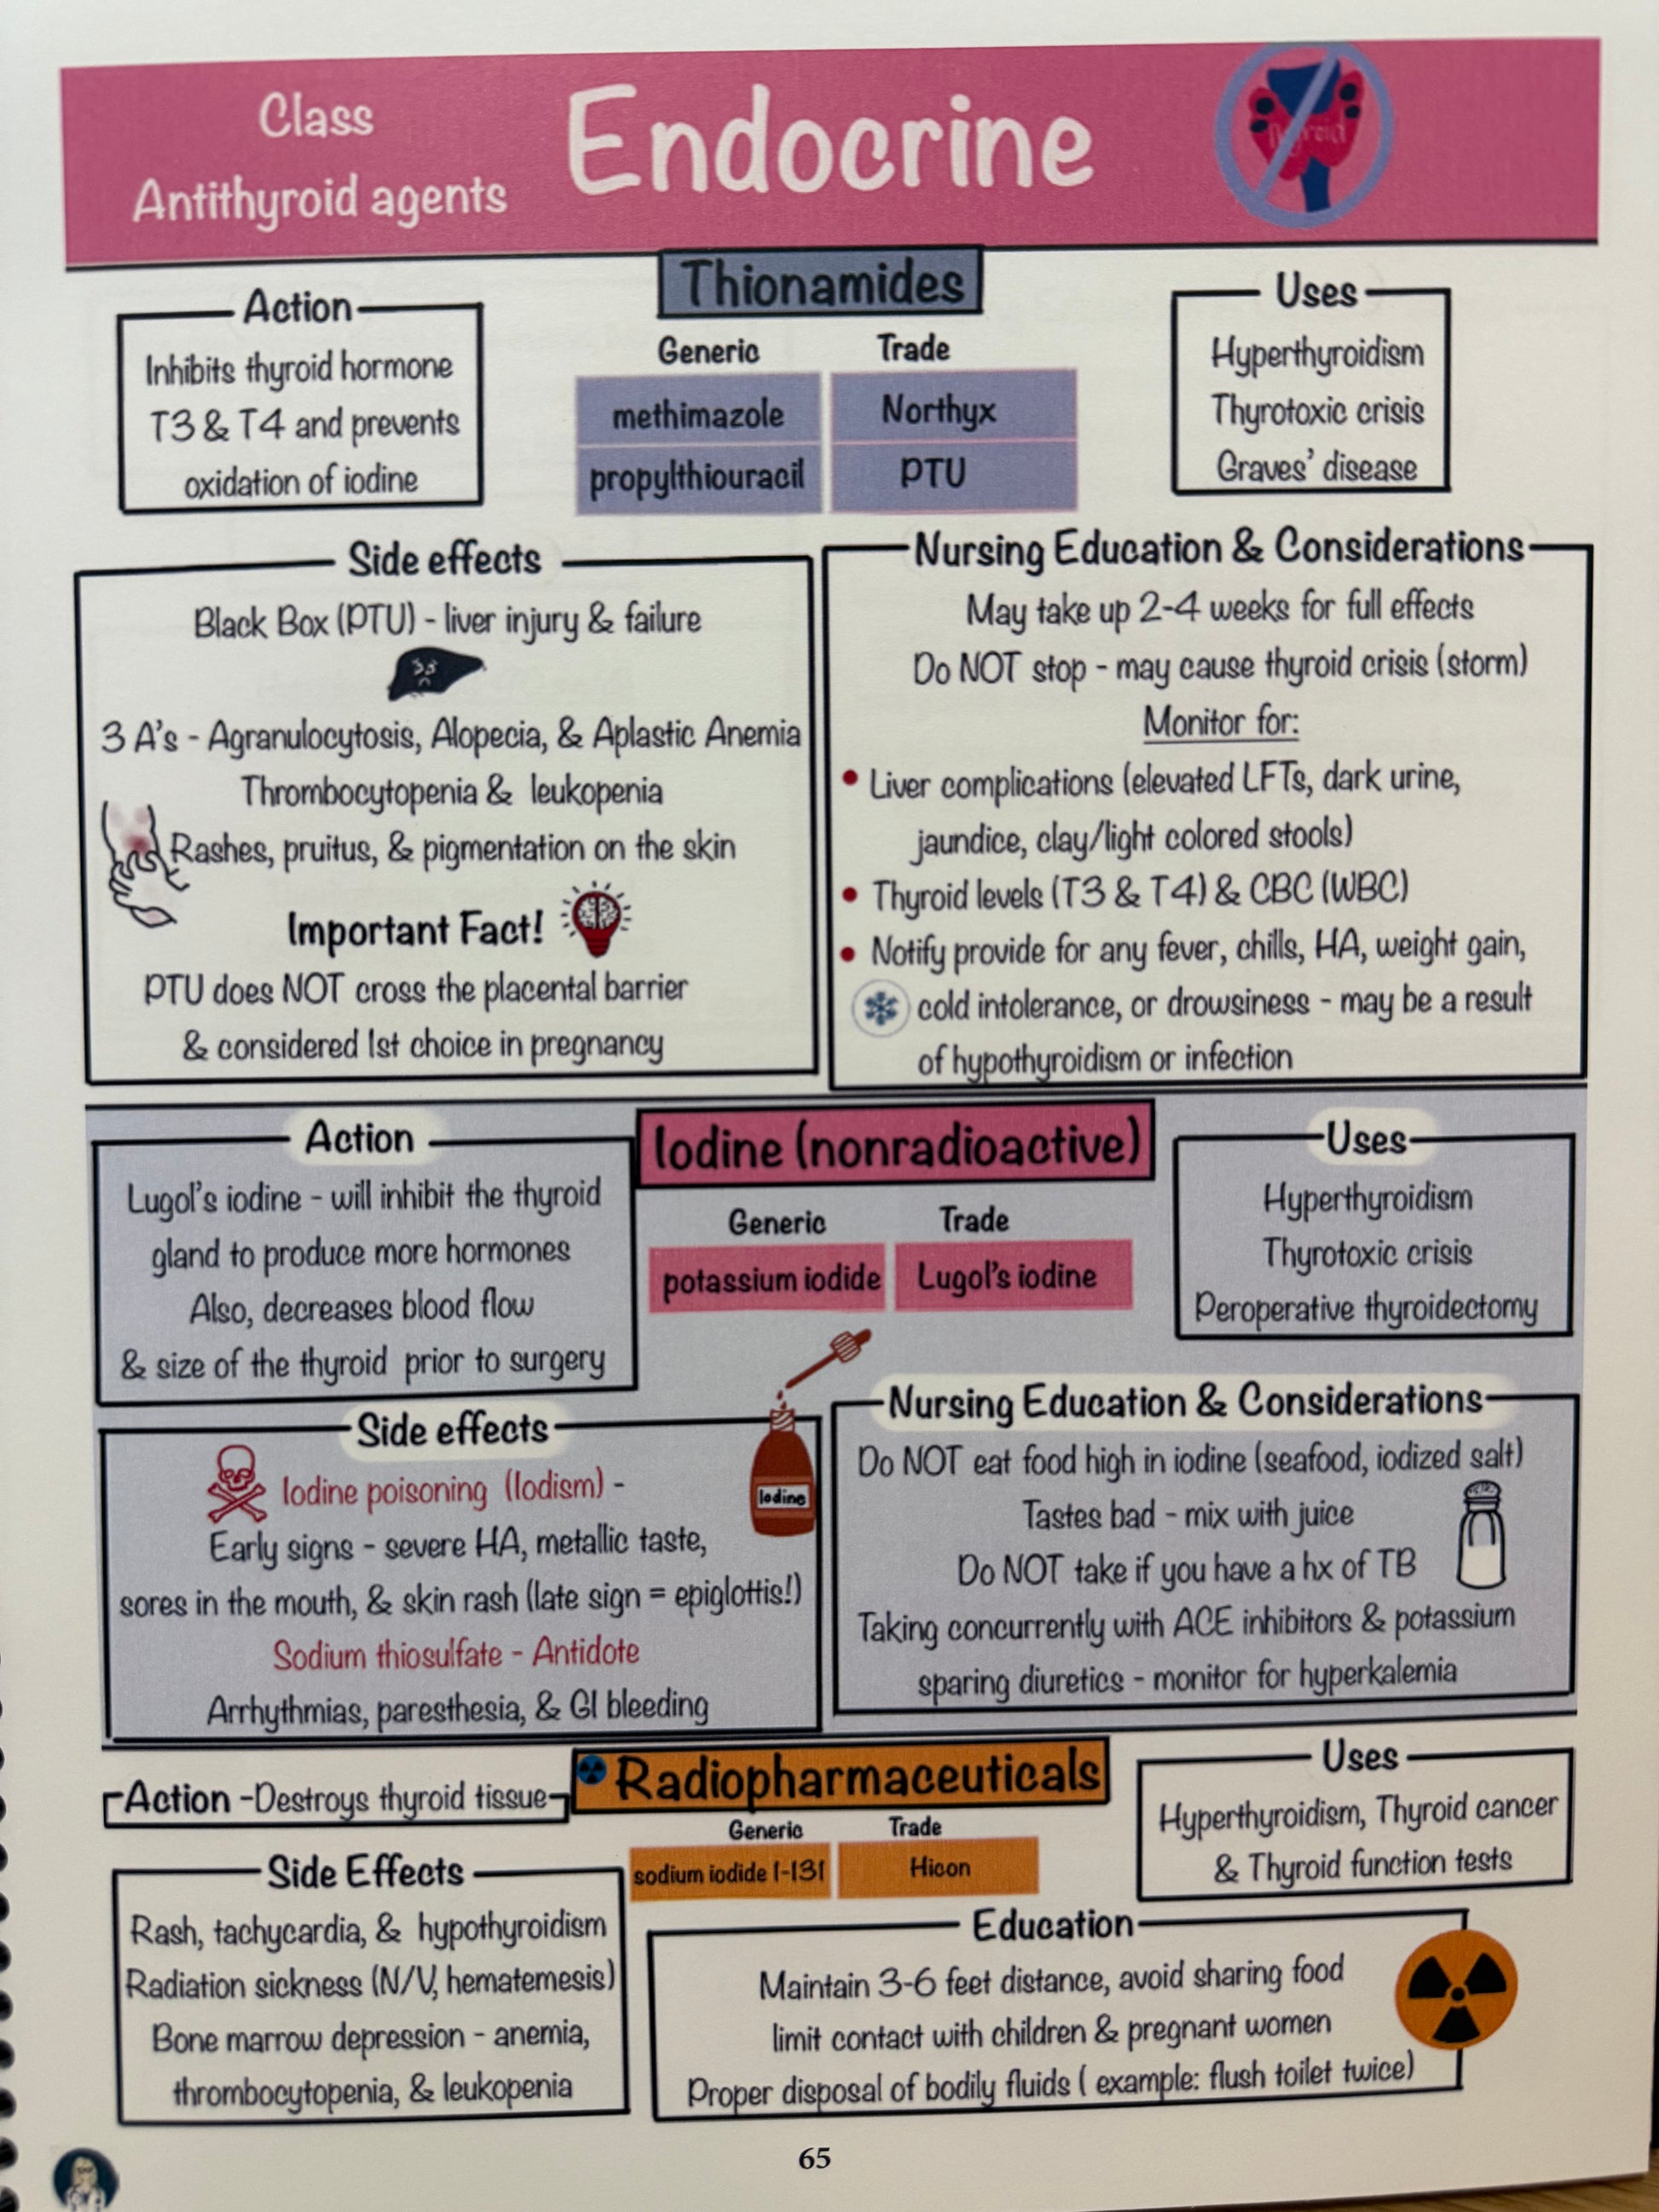 Class
Antithyroid agents
Endocrine
Thionamides
Action
Inhibits thyroid hormone
T3 & T4 and prevents
oxidation of iodine
Generic Trade
methimazole Northyx
propylthiouracil PTU
Uses
Hyperthyroidism
Thyrotoxic crisis
Graves' disease
Side effects
Black Box (PTU) - liver injury & failure
3 A's - Agranulocytosis, Alopecia, & Aplastic Anemia
Thrombocytopenia & leukopenia
Rashes, pruitus, & pigmentation on the skin
Important Fact!
PTU does NOT cross the placental barrier
& considered 1st choice in pregnancy
Nursing Education & Considerations
May take up 2-4 weeks for full effects
Do NOT stop - may cause thyroid crisis (storm)
Monitor for:
• Liver complications (elevated LFTs, dark urine,
jaundice, clay/light colored stools)
• Thyroid levels (T3 & T4) & CBC (WBC)
• Notify provide for any fever, chills, HA, weight gain,
cold intolerance, or drowsiness - may be a result
of hypothyroidism or infection
Iodine (nonradioactive)
Action
Lugol's iodine - will inhibit the thyroid
gland to produce more hormones
Also, decreases blood flow
& size of the thyroid prior to surgery
Generic Trade
potassium iodide Lugol's iodine
Uses
Hyperthyroidism
Thyrotoxic crisis
Peroperative thyroidectomy
Side effects
Iodine poisoning (Iodism) -
Early signs - severe HA, metallic taste,
sores in the mouth, & skin rash (late sign = epiglottis!)
Sodium thiosulfate - Antidote
Arrhythmias, paresthesia, & GI bleeding
Iodine
Nursing Education & Considerations
Do NOT eat food high in iodine (seafood, iodized salt)
Tastes bad - mix with juice
Do NOT take if you have a hx of TB
Taking concurrently with ACE inhibitors & potassium
sparing diuretics - monitor for hyperkalemia
Radiopharmaceuticals
Action -Destroys thyroid tissue
Generic Trade
sodium iodide I-131 Hicon
Uses
Hyperthyroidism, Thyroid cancer
& Thyroid function tests
Side Effects
Rash, tachycardia, & hypothyroidism
Radiation sickness (N/V, hematemesis)
Bone marrow depression - anemia,
thrombocytopenia, & leukopenia
Education
Maintain 3-6 feet distance, avoid sharing food
limit contact with children & pregnant women
Proper disposal of bodily fluids ( example: flush toilet twice)
65